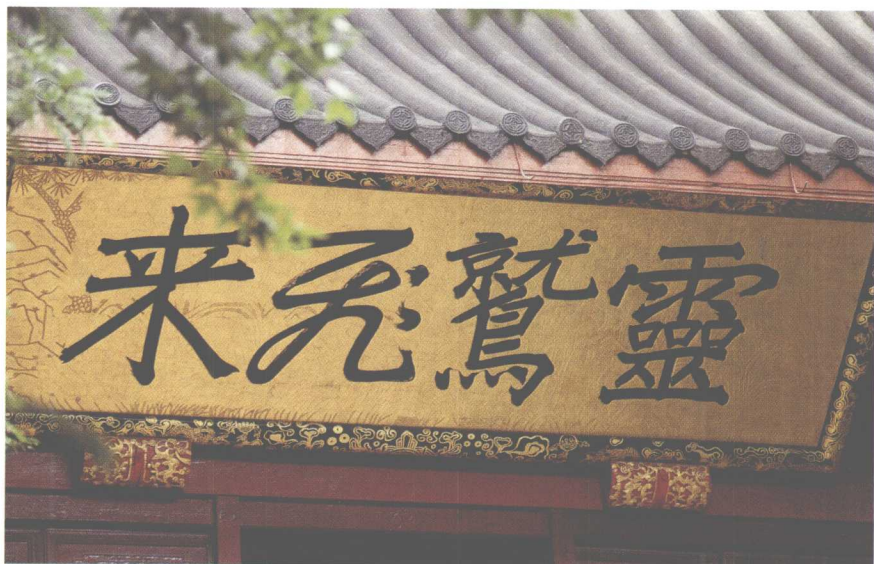 靈鷲飛来